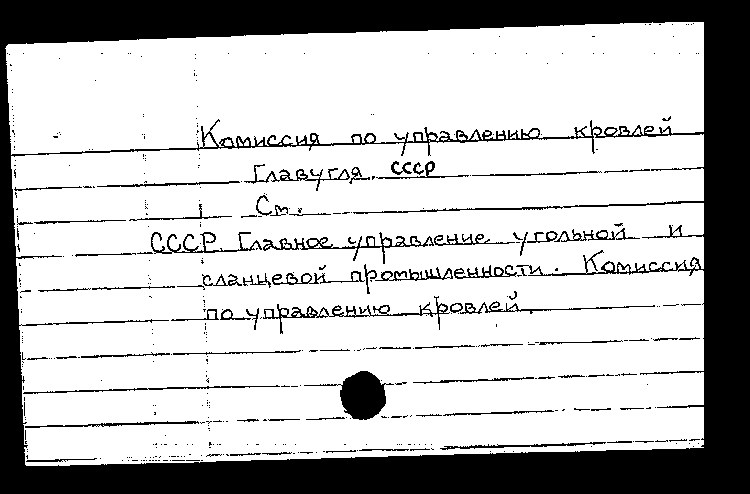 Комиссия по управлению кровлей
Главугля СССР
См.
СССР. Главное управление угольной и
сланцевой промышленности. Комиссия
по управлению кровлей.